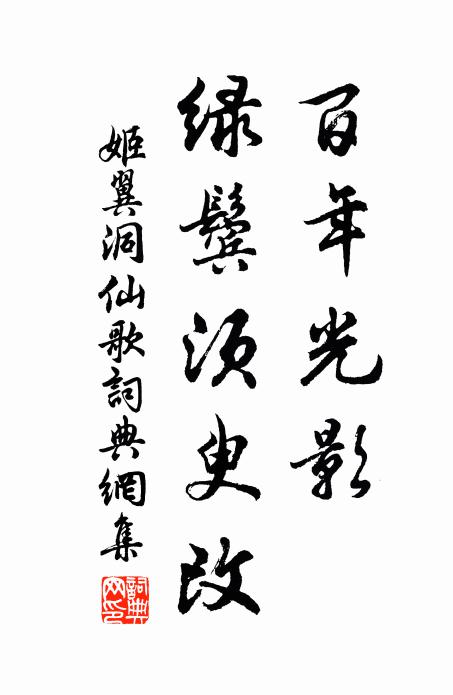 百年光影
緑鬢须臾改
姬翼洞仙歌詞典網集
詞典网印